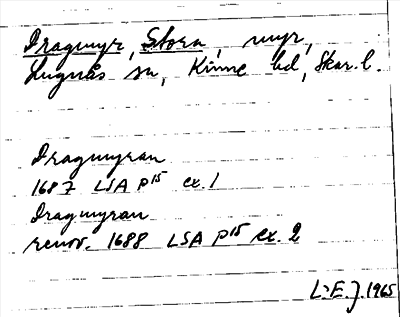 Dragmyr, Stora, myr,
Lugnås sn, Kinne hd, Skar. l.
Dragmyran
1687 LSA P15 ex. 1
Dragmyran
renov. 1688 LSA P15 ex. 2
L-E. J. 1965